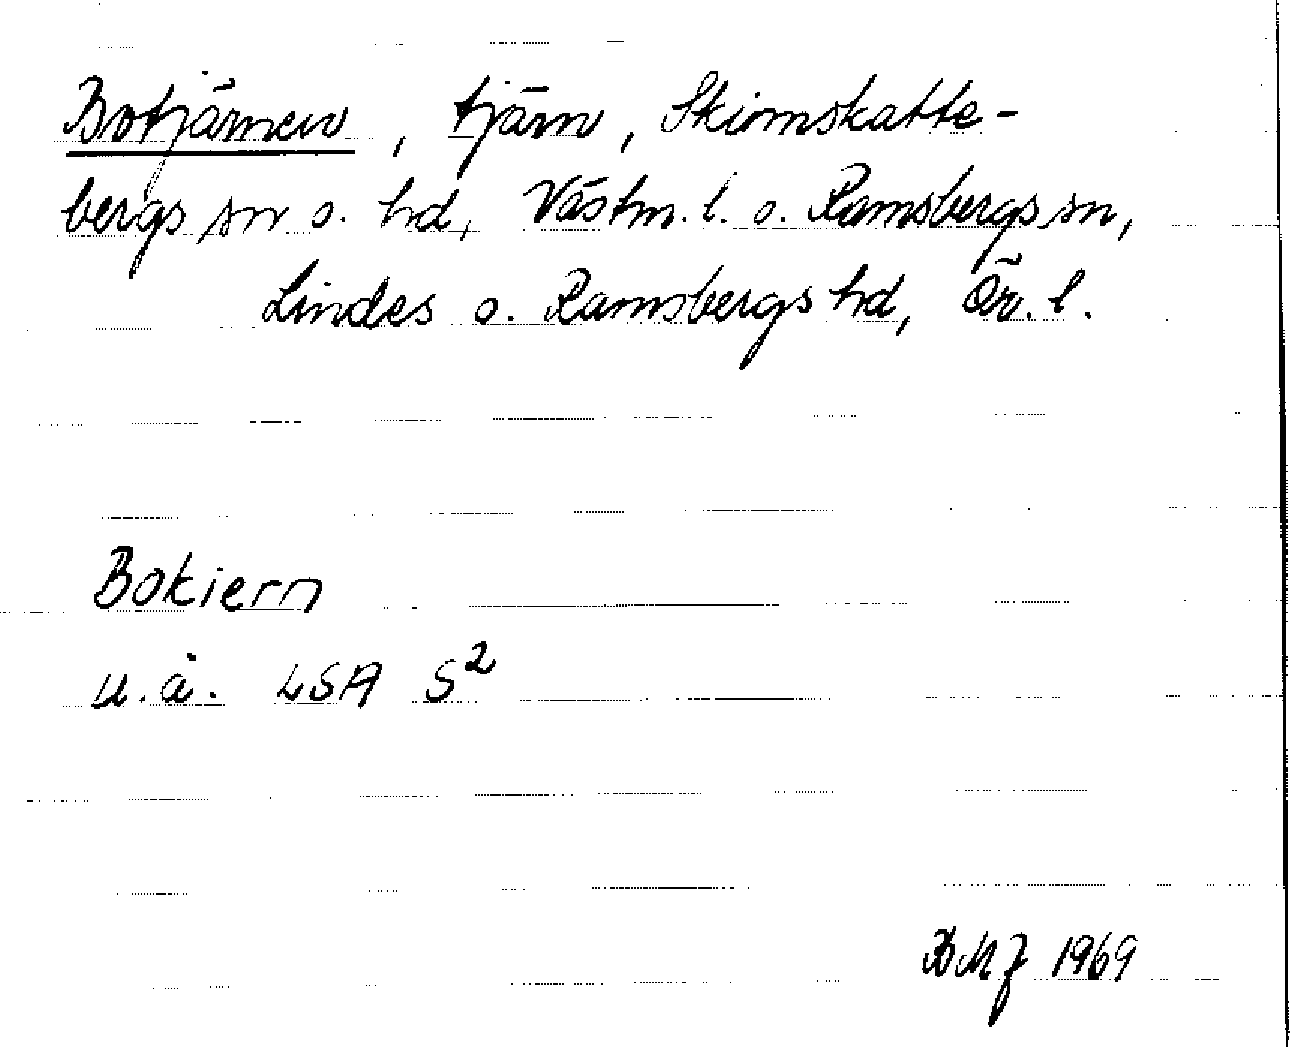 Botjärnen, tjärn, Skinnskatte-
bergs sn o. hd, Västm. l. o. Ramsbergs sn,
Lindes o. Ramsbergs hd, Ör. l.
Bokiern
u.ä. LSA S²
1969